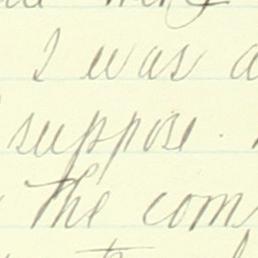 I was a
suppose.
The com